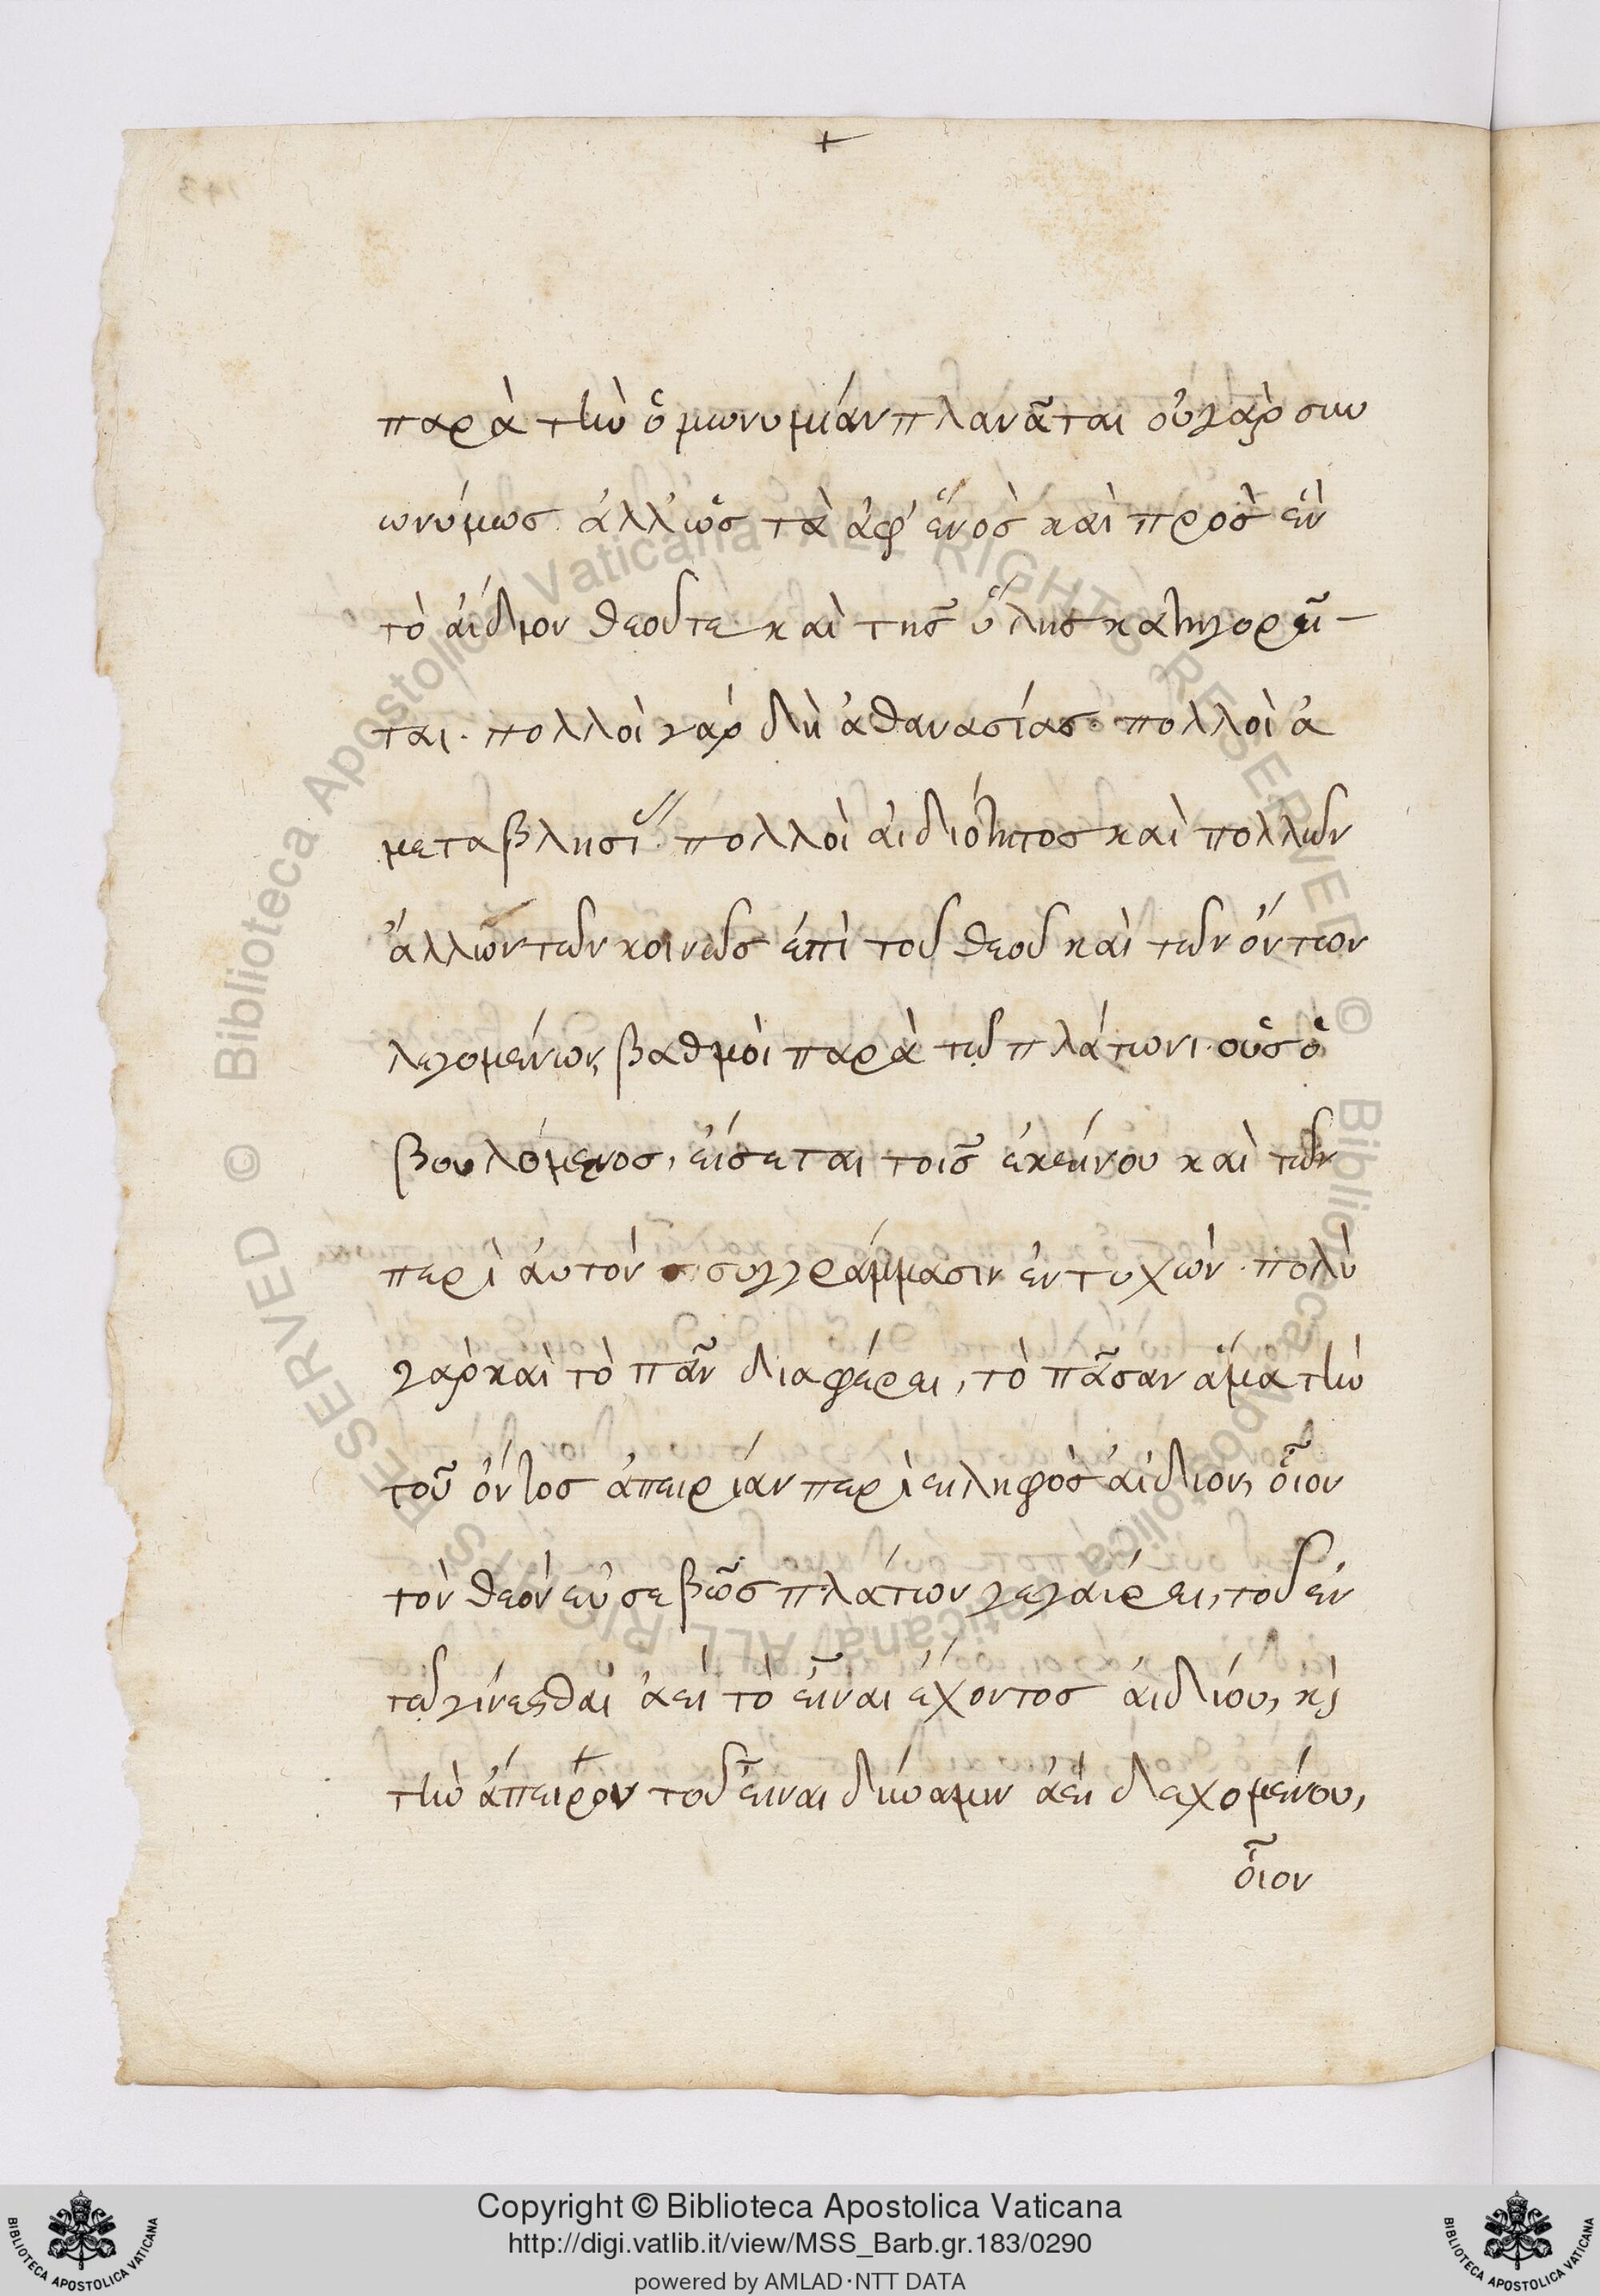 +
παρὰ τὴν ὁμωνυμίαν πλανᾶται οὐ γὰρ συν
ωνύμως ἀλλ' ὡς τὰ ἀφ' ἑνὸς καὶ πρὸς ἓν
τὸ ἀίδιον θεοῦ τε καὶ τῆς ὕλης κατηγορεῖ-
ται. πολλοὶ γὰρ δὴ ἀθανασίας· πολλοὶ ἀ
μεταβλησί πολλοὶ ἀιδιότητος καὶ πολλῶν
ἄλλων τῶν κοινῶς ἐπὶ τοῦ θεοῦ καὶ τῶν ὄντων
λεγομένων, βαθμοὶ παρὰ τῷ πλάτωνι. οὓς ὁ
βουλόμενος, εἴσεται τοῖς ἐκείνου καὶ τῶν
περὶ αὐτὸν συγγράμμασιν ἐντυχών. πολὺ
γὰρ καὶ τὸ πᾶν διαφέρει, τὸ πᾶσαν ἅμα τὴν
τοῦ ὄντος ἀπειρίαν περιειληφὸς ἀίδιον, οἷον
τὸν θεὸν εὐσεβῶς πλάτων γεγαίρει, τοῦ ἐν
τῷ γίνεσθαι ἀεὶ τὸ εἶναι ἔχοντος ἀιδίου, κὶ
τὴν ἄπειρον τοῦ εἶναι δύναμιν ἀεὶ δεχομένου,
οἷον
Copyright © Biblioteca Apostolica Vaticana
http://digi.vatlib.it/view/MSS_Barb.gr.183/0290
powered by AMLAD·NTT DATA